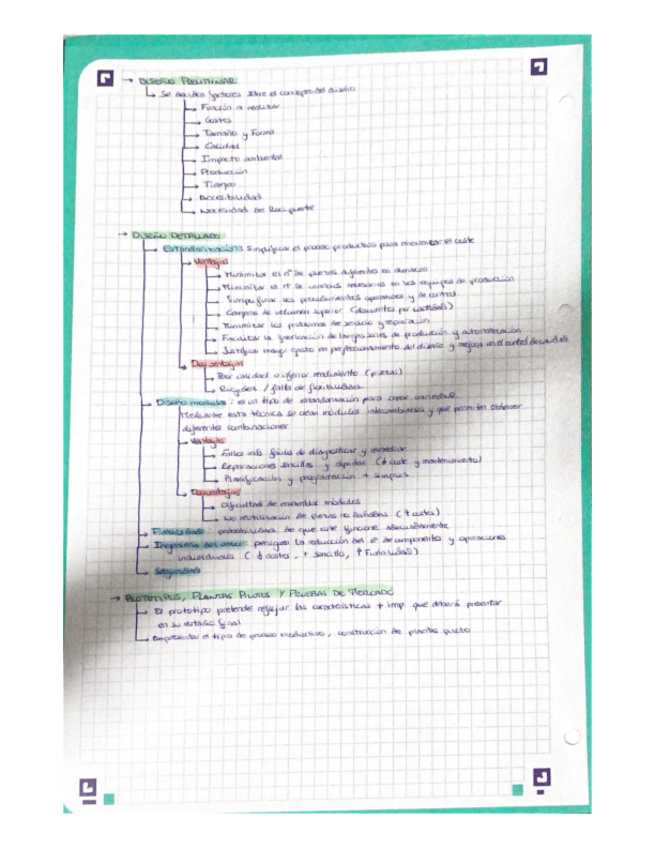 → DISEÑO PRELIMINAR:
↳ Se analizan factores sobre el concepto del diseño
→ Función a realizar
→ Costes
→ Tamaño y Forma
→ Calidad
→ Impacto ambiental
→ Producción
→ Tiempo
→ Accesibilidad
→ Necesidad de Recipiente
→ DISEÑO DETALLADO:
→ Estandarización: Simplificar el proceso productivo para minimizar el coste
→ Ventajas
→ Minimizar el nº de piezas diferentes en almacén
→ Minimizar el nº de cambios necesarios en los equipos de producción
→ Simplificar los procedimientos operativos y de control.
→ Compras de volumen superior (descuentos por cantidad)
→ Minimizar los problemas de servicio y reparación
→ Facilitar la fabricación de largas series de producción y automatización
→ Justificar mayor gasto en perfeccionamiento del diseño y mejora en el control de calidad
→ Desventajas
→ Por calidad o inferior rendimiento (pieza)
→ Rigidez / falta de flexibilidad
→ Diseño modular: es un tipo de estandarización para crear variedad.
Mediante esta técnica se crean módulos intercambiables y que permiten obtener
diferentes combinaciones
→ Ventajas
→ Fallos más fáciles de diagnosticar y remediar
→ Reparaciones sencillas y rápidas (↓ coste y mantenimiento)
→ Planificación y programación + simples
→ Desventajas
→ Dificultad de módulos
→ No reutilización de piezas no dañadas (↑ costes)
→ Fiabilidad: probabilidad de que este funcione adecuadamente
→ Ingeniería del valor: persigue la reducción del nº de componentes y operaciones
individuales (↓ costes, + sencillo, ↑ Fiabilidad)
→ Seguridad
→ PROTOTIPOS, PLANTAS PILOTOS Y PRUEBAS DE MERCADO
→ El prototipo pretende reflejar las características + imp. que deberá presentar
en su estado final
→ el tipo de proceso productivo, construcción de plantas piloto